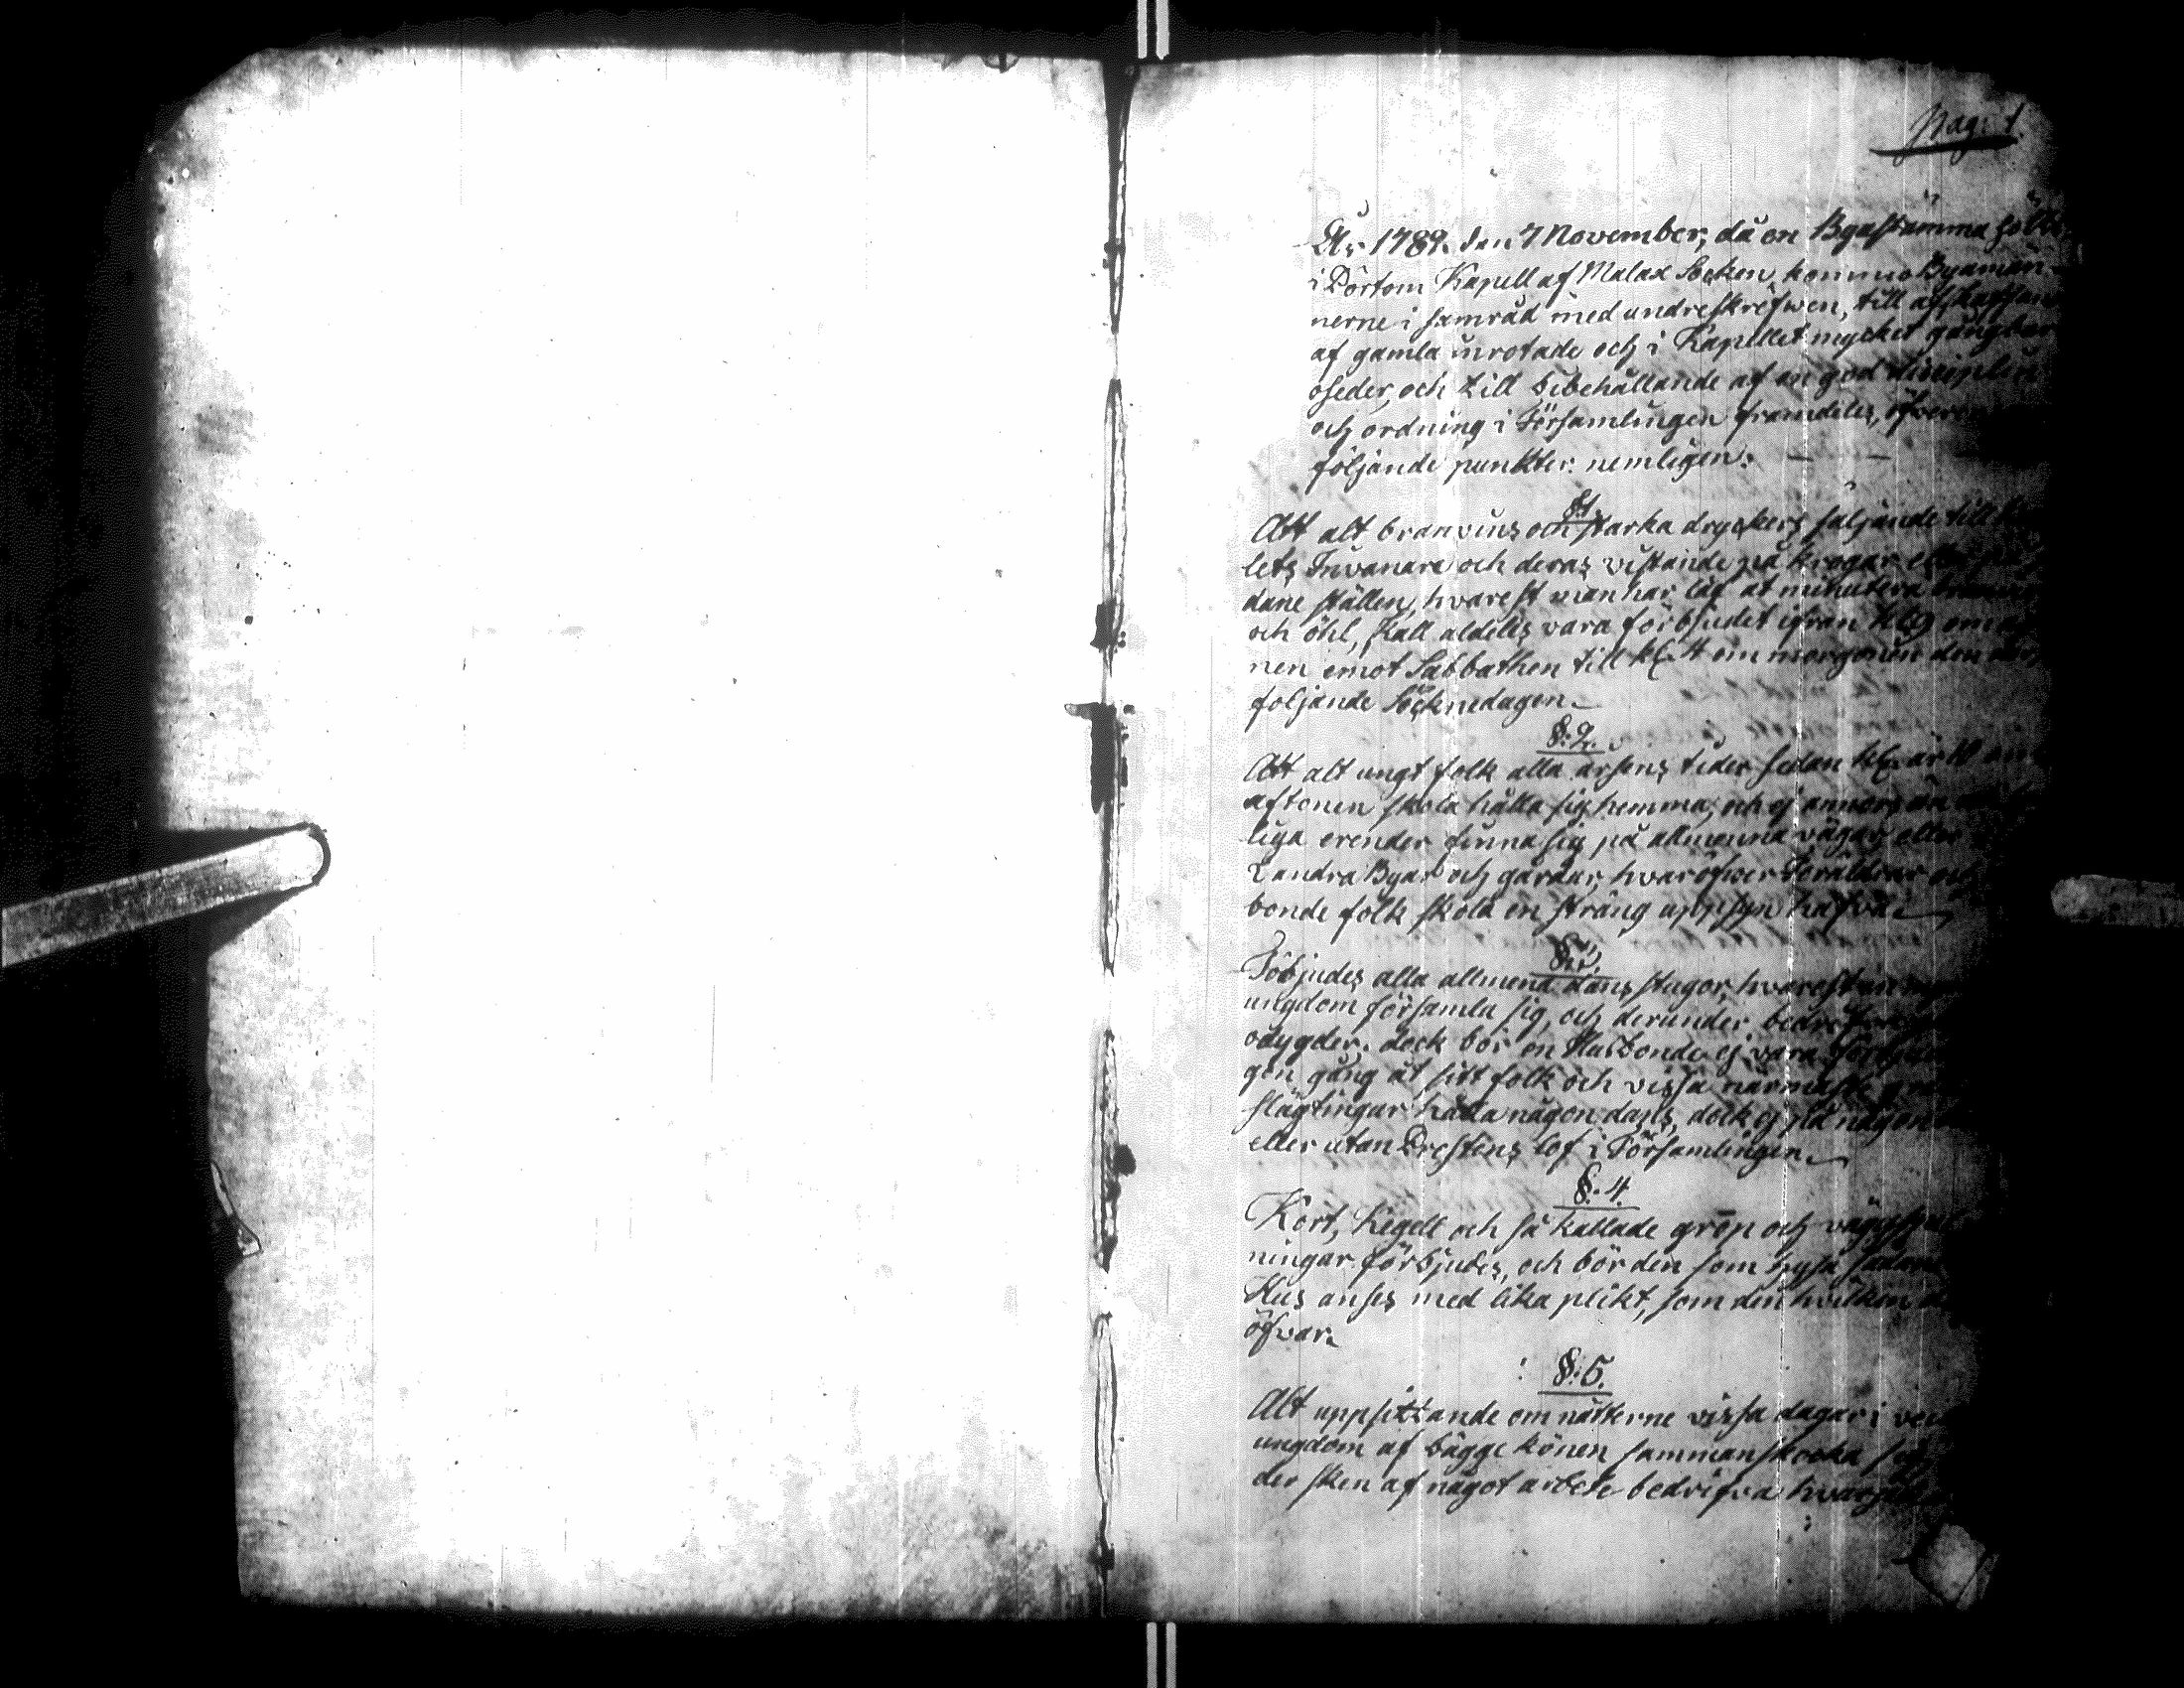 Pag: 1.
År 1789. den 7 November, då en Byastämma hölts
i Pörtom Kapell af Malax Socken, kommo Byamän-
nerne i samråd med undreskrefwen, till afskaffan
af gamla inrotade och i Kapellet mycket gångbar
oseder, och till bibehållande af en god disciplin
och ordning i Församlingen framdeles, öfveren
följande punkter. nemligen:
§:1.
Att alt branvins och starka dryckers säljande till
lets Invånare och deras vistande på krogar eller
dane ställen, hvarest man har låf at minutera branvin
och öhl, skall aldeles vara förbjudet ifrån kl. 9 om
nen emot Sabbathen till kl. 4 om morgonen den
följande Söcknedagen.
§:2.
Att alt ungt folk alla årsens tider sedan kl. är 10 om
aftonen skola hålla sig hemma, och ej annors än
liga erender finna sig på allmenna vägar eller
i andra Byar och gårdar, hvaröfwer Föräldrar och
bonde folk skola en sträng uppsyn hafva.
§:3.
Föbjudes alla allmena dans stugor, hvarest en
ungdom församla sig, och derunder bedrifva
odygder. dock bör en Husbonde ej vara förbjudet
gon gång åt sitt folk och vissa närmaste
slägtingar hålla någon dans, dock ej på någon
eller utan Prestens lof i Församlingen.
§:4.
Kort, Kegell och så kallade grop och väggspel
ningar förbjudes, och bör den som hysa sådant
Hus anses med lika plikt, som den hvilken de
öfvar.
§:5.
Alt uppsittande om nätterne vissa dagar i vec
ungdom af bägge könen sammanskocka sig
der sken af något arbete bedrifva hvarjeha